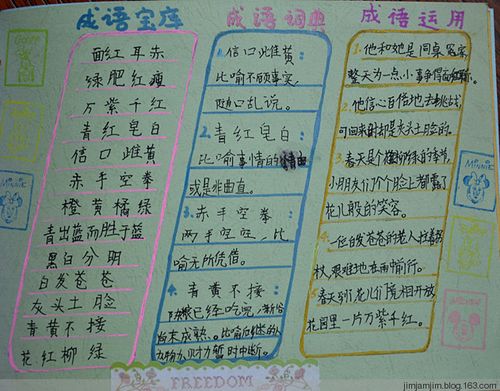 成语宝库
面红耳赤
绿肥红瘦
万紫千红
青红皂白
信口雌黄
赤手空拳
橙黄橘绿
青出蓝而胜于蓝
黑白分明
白发苍苍
灰头土脸
青黄不接
花红柳绿
成语词典
1.信口雌黄:
比喻不顾事实,
随口乱说。
2.青红皂白:
比喻事情的情由
或是非曲直。
3.赤手空拳:
两手空空,比
喻无所凭借。
4.青黄不接:
已经吃完,
未成熟。比喻
暂时中断。
成语运用
1.他和她是同桌冤家,
整天为一点小事争得面红耳赤。
2.他信心百倍地去挑战,
可回来时却是灰头土脸的。
3.春天是个花红柳绿的季节,
小朋友们个个脸上都露了
花儿般的笑容。
4.一位白发苍苍的老人拄着拐
杖,艰难地在雨中前行。
5.春天到了,花儿们竞相开放,
花园里一片万紫千红。
Goofy
MINNIE
MINNIE
MICKEY
FREEDOM
jimjamjim.blog.163.com